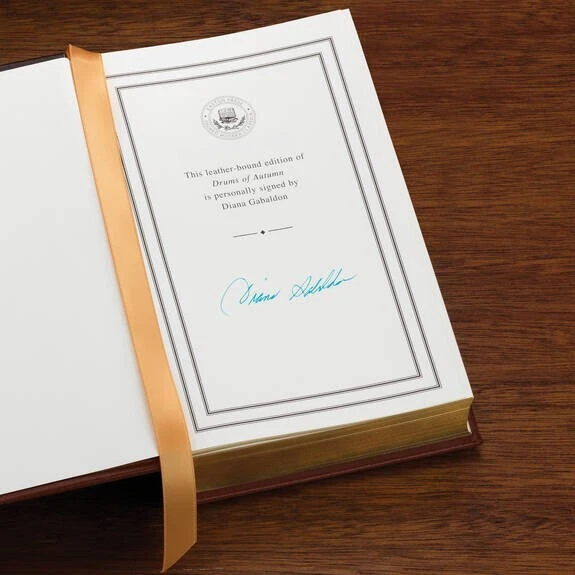 EASTON PRESS
This leather-bound edition of
Drums of Autumn
is personally signed by
Diana Gabaldon
Diana Gabaldon